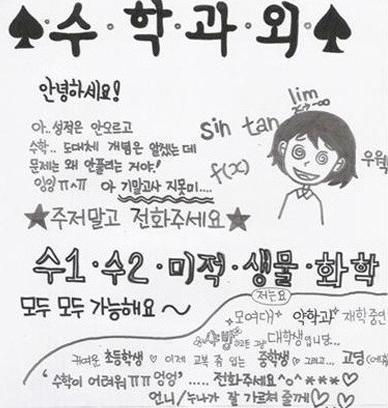 ♠·수·학·과·외·♠
안녕하세요!
lim
x→-∞
sin tan
f(x)
우웩
아.. 성적은 안오르고
수학.. 도대체 개념은 알겠는데
문제는 왜 안풀리는 거야!
엉엉 ㅠㅅㅠ 아 기말고사 지못미....
★주저말고 전화주세요★
수1·수2·미적·생물·화학
모두 모두 가능해요~
저는요
모여대 약학과 재학중인
대학생입니당...
귀여운 초등학생 ♡ 이제 교복 좀 입는 중학생 ♡ 그리고... 고딩
'수학이 어려워ㅠㅠ 엉엉' ..... 전화주세요^o^***♡♡
언니/누나가 잘 가르쳐 줄게♡♡♡